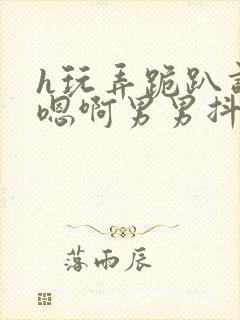 h玩弄跪趴
嗯啊男男抖
落雨辰